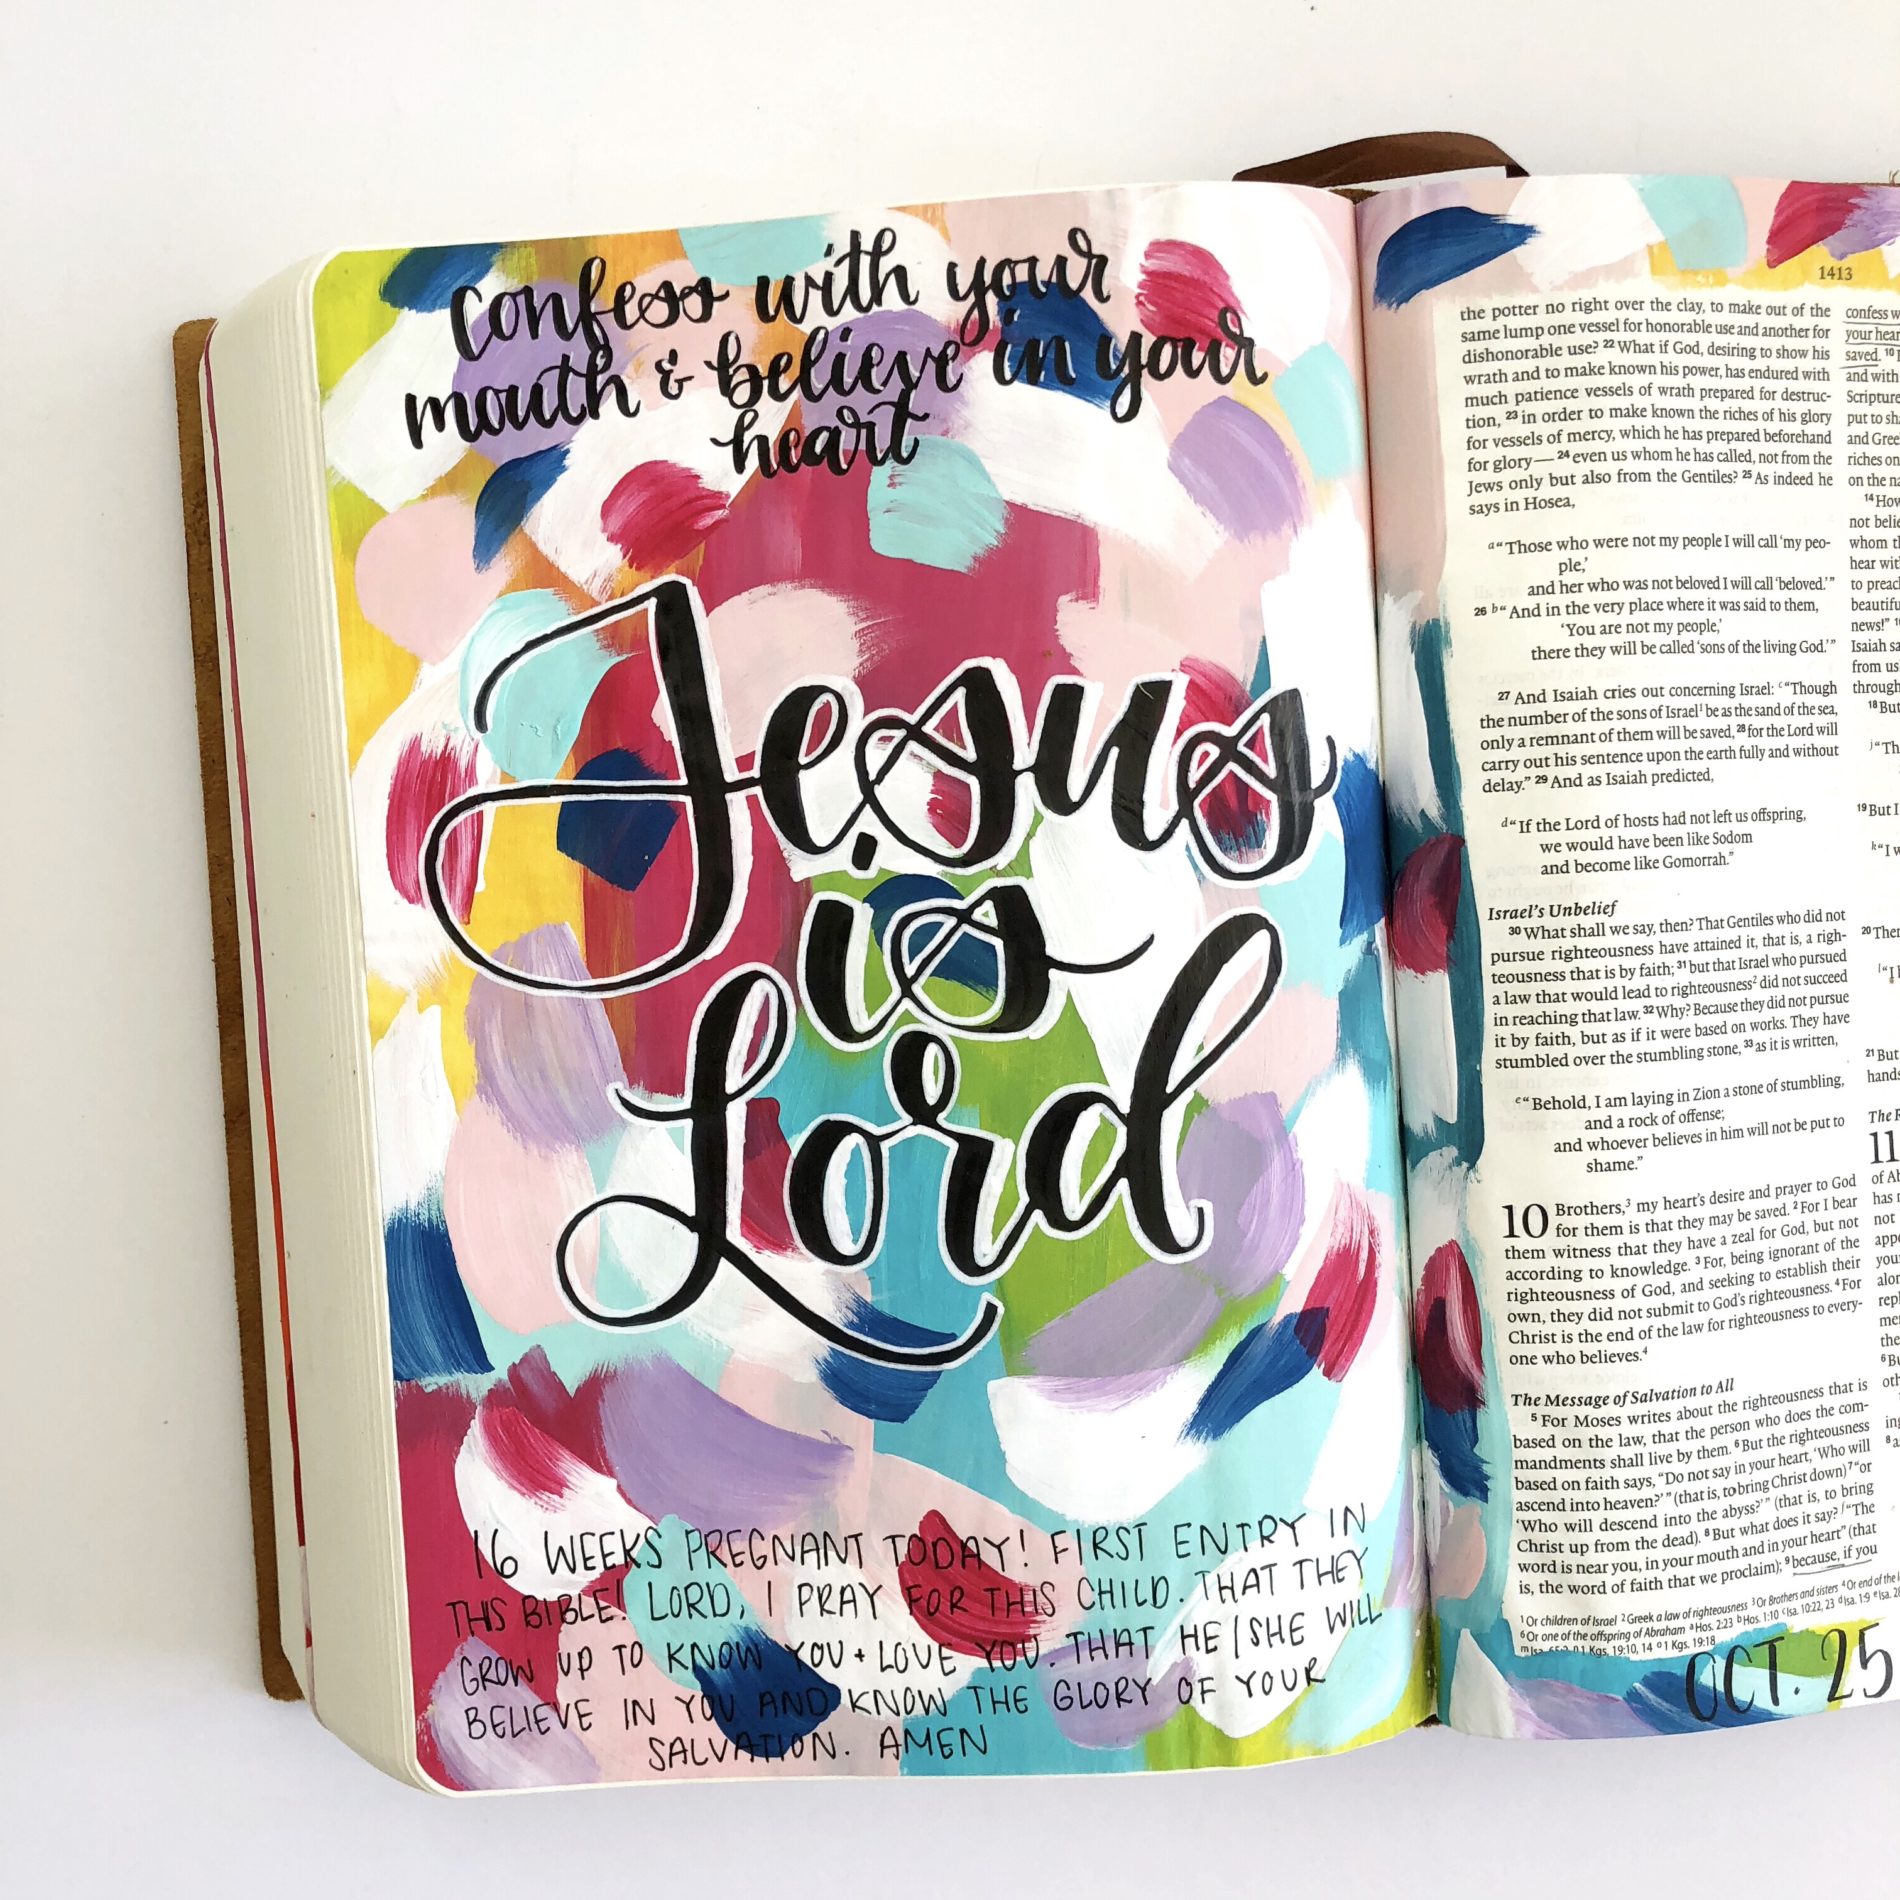 Confess with your
mouth & believe in your
heart
Jesus
is
Lord
16 WEEKS PREGNANT TODAY! FIRST ENTRY IN
THIS BIBLE! LORD, I PRAY FOR THIS CHILD. THAT THEY
GROW UP TO KNOW YOU + LOVE YOU. THAT HE/SHE WILL
BELIEVE IN YOU AND KNOW THE GLORY OF YOUR
SALVATION. AMEN
1413
the potter no right over the clay, to make out of the
same lump one vessel for honorable use and another for
dishonorable use? 22 What if God, desiring to show his
wrath and to make known his power, has endured with
much patience vessels of wrath prepared for destruc-
tion, 23 in order to make known the riches of his glory
for vessels of mercy, which he has prepared beforehand
for glory— 24 even us whom he has called, not from the
Jews only but also from the Gentiles? 25 As indeed he
says in Hosea,
a "Those who were not my people I will call 'my peo-
ple,'
and her who was not beloved I will call 'beloved.'"
26 b "And in the very place where it was said to them,
'You are not my people,'
there they will be called 'sons of the living God.'"
27 And Isaiah cries out concerning Israel: c "Though
the number of the sons of Israel1 be as the sand of the sea,
only a remnant of them will be saved, 28 for the Lord will
carry out his sentence upon the earth fully and without
delay." 29 And as Isaiah predicted,
d "If the Lord of hosts had not left us offspring,
we would have been like Sodom
and become like Gomorrah."
Israel's Unbelief
30 What shall we say, then? That Gentiles who did not
pursue righteousness have attained it, that is, a righ-
teousness that is by faith; 31 but that Israel who pursued
a law that would lead to righteousness2 did not succeed
in reaching that law. 32 Why? Because they did not pursue
it by faith, but as if it were based on works. They have
stumbled over the stumbling stone, 33 as it is written,
e "Behold, I am laying in Zion a stone of stumbling,
and a rock of offense;
and whoever believes in him will not be put to
shame."
10 Brothers,3 my heart's desire and prayer to God
for them is that they may be saved. 2 For I bear
them witness that they have a zeal for God, but not
according to knowledge. 3 For, being ignorant of the
righteousness of God, and seeking to establish their
own, they did not submit to God's righteousness. 4 For
Christ is the end of the law for righteousness to every-
one who believes.4
The Message of Salvation to All
5 For Moses writes about the righteousness that is
based on the law, that the person who does the com-
mandments shall live by them. 6 But the righteousness
based on faith says, "Do not say in your heart, 'Who will
ascend into heaven?'" (that is, to bring Christ down) 7 "or
'Who will descend into the abyss?'" (that is, to bring
Christ up from the dead). 8 But what does it say? f "The
word is near you, in your mouth and in your heart" (that
is, the word of faith that we proclaim); 9 because, if you
1 Or children of Israel 2 Greek a law of righteousness 3 Or Brothers and sisters 4 Or end of the
6 Or one of the offspring of Abraham a Hos. 2:23 b Hos. 1:10 c Isa. 10:22, 23 d Isa. 1:9 e Isa.
1 Kgs. 19:10, 14 o 1 Kgs. 19:18
confess
your
saved. 10
and with
Scripture
put to
and
riches on
on the
14
not
whom
hear
to
news!"
Isaiah
from us
through
18 But
j "
19 But I
k "I
20
l "I
21 But
The
11
of
has
not
the
6
8
OCT. 25